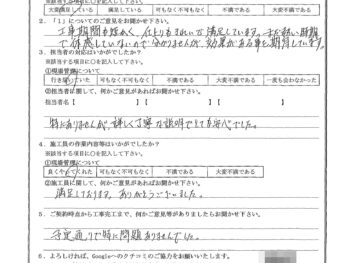 ※該当する項目に○を記入して下さい。
大変満足している 満足している 可もなく不可もなく 不満である 大変不満である
2.「1」についてのご意見をお聞かせ下さい。
工事期間も短かく、仕上りもきれいで満足しています。まだ暑い時期
で体感していないので分かりませんが、効果がある事を期待しています。
3. 担当者の対応はいかがでしたか?
※該当する項目に○を記入して下さい。
①現場管理について
行き届いていた 可もなく不可もなく 不満である 大変不満である 一度も会わなかった
②担当者に関して、何かご意見があればお聞かせ下さい。
担当者名【 】 担当者名【 】
特にありませんが、詳しく丁寧な説明でとても安心でした。
4. 施工員の作業内容等はいかがでしたか?
※該当する項目に○を記入して下さい。
①現場管理について
良くやってくれた 可もなく不可もなく 不満である 大変不満である
②施工員に関して、何かご意見があればお聞かせ下さい。
満足しております。ありがとうございました。
5. ご契約時点から工事完工まで、何かご意見等がありましたらお聞かせ下さい。
予定通りで特に問題ありませんでした。
6. よろしければ、Googleへのクチコミのご協力をお願いいたします。